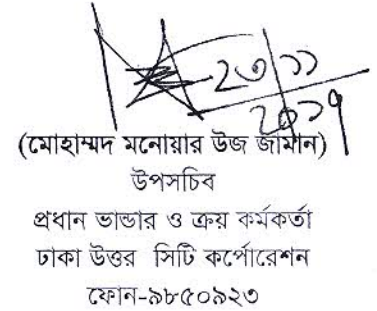 ২৩/১১
২০১৭
(মোহাম্মদ মনোয়ার উজ জামান)
উপসচিব
প্রধান ভান্ডার ও ক্রয় কর্মকর্তা
ঢাকা উত্তর সিটি কর্পোরেশন
ফোন-৯৮৫০৯২৩